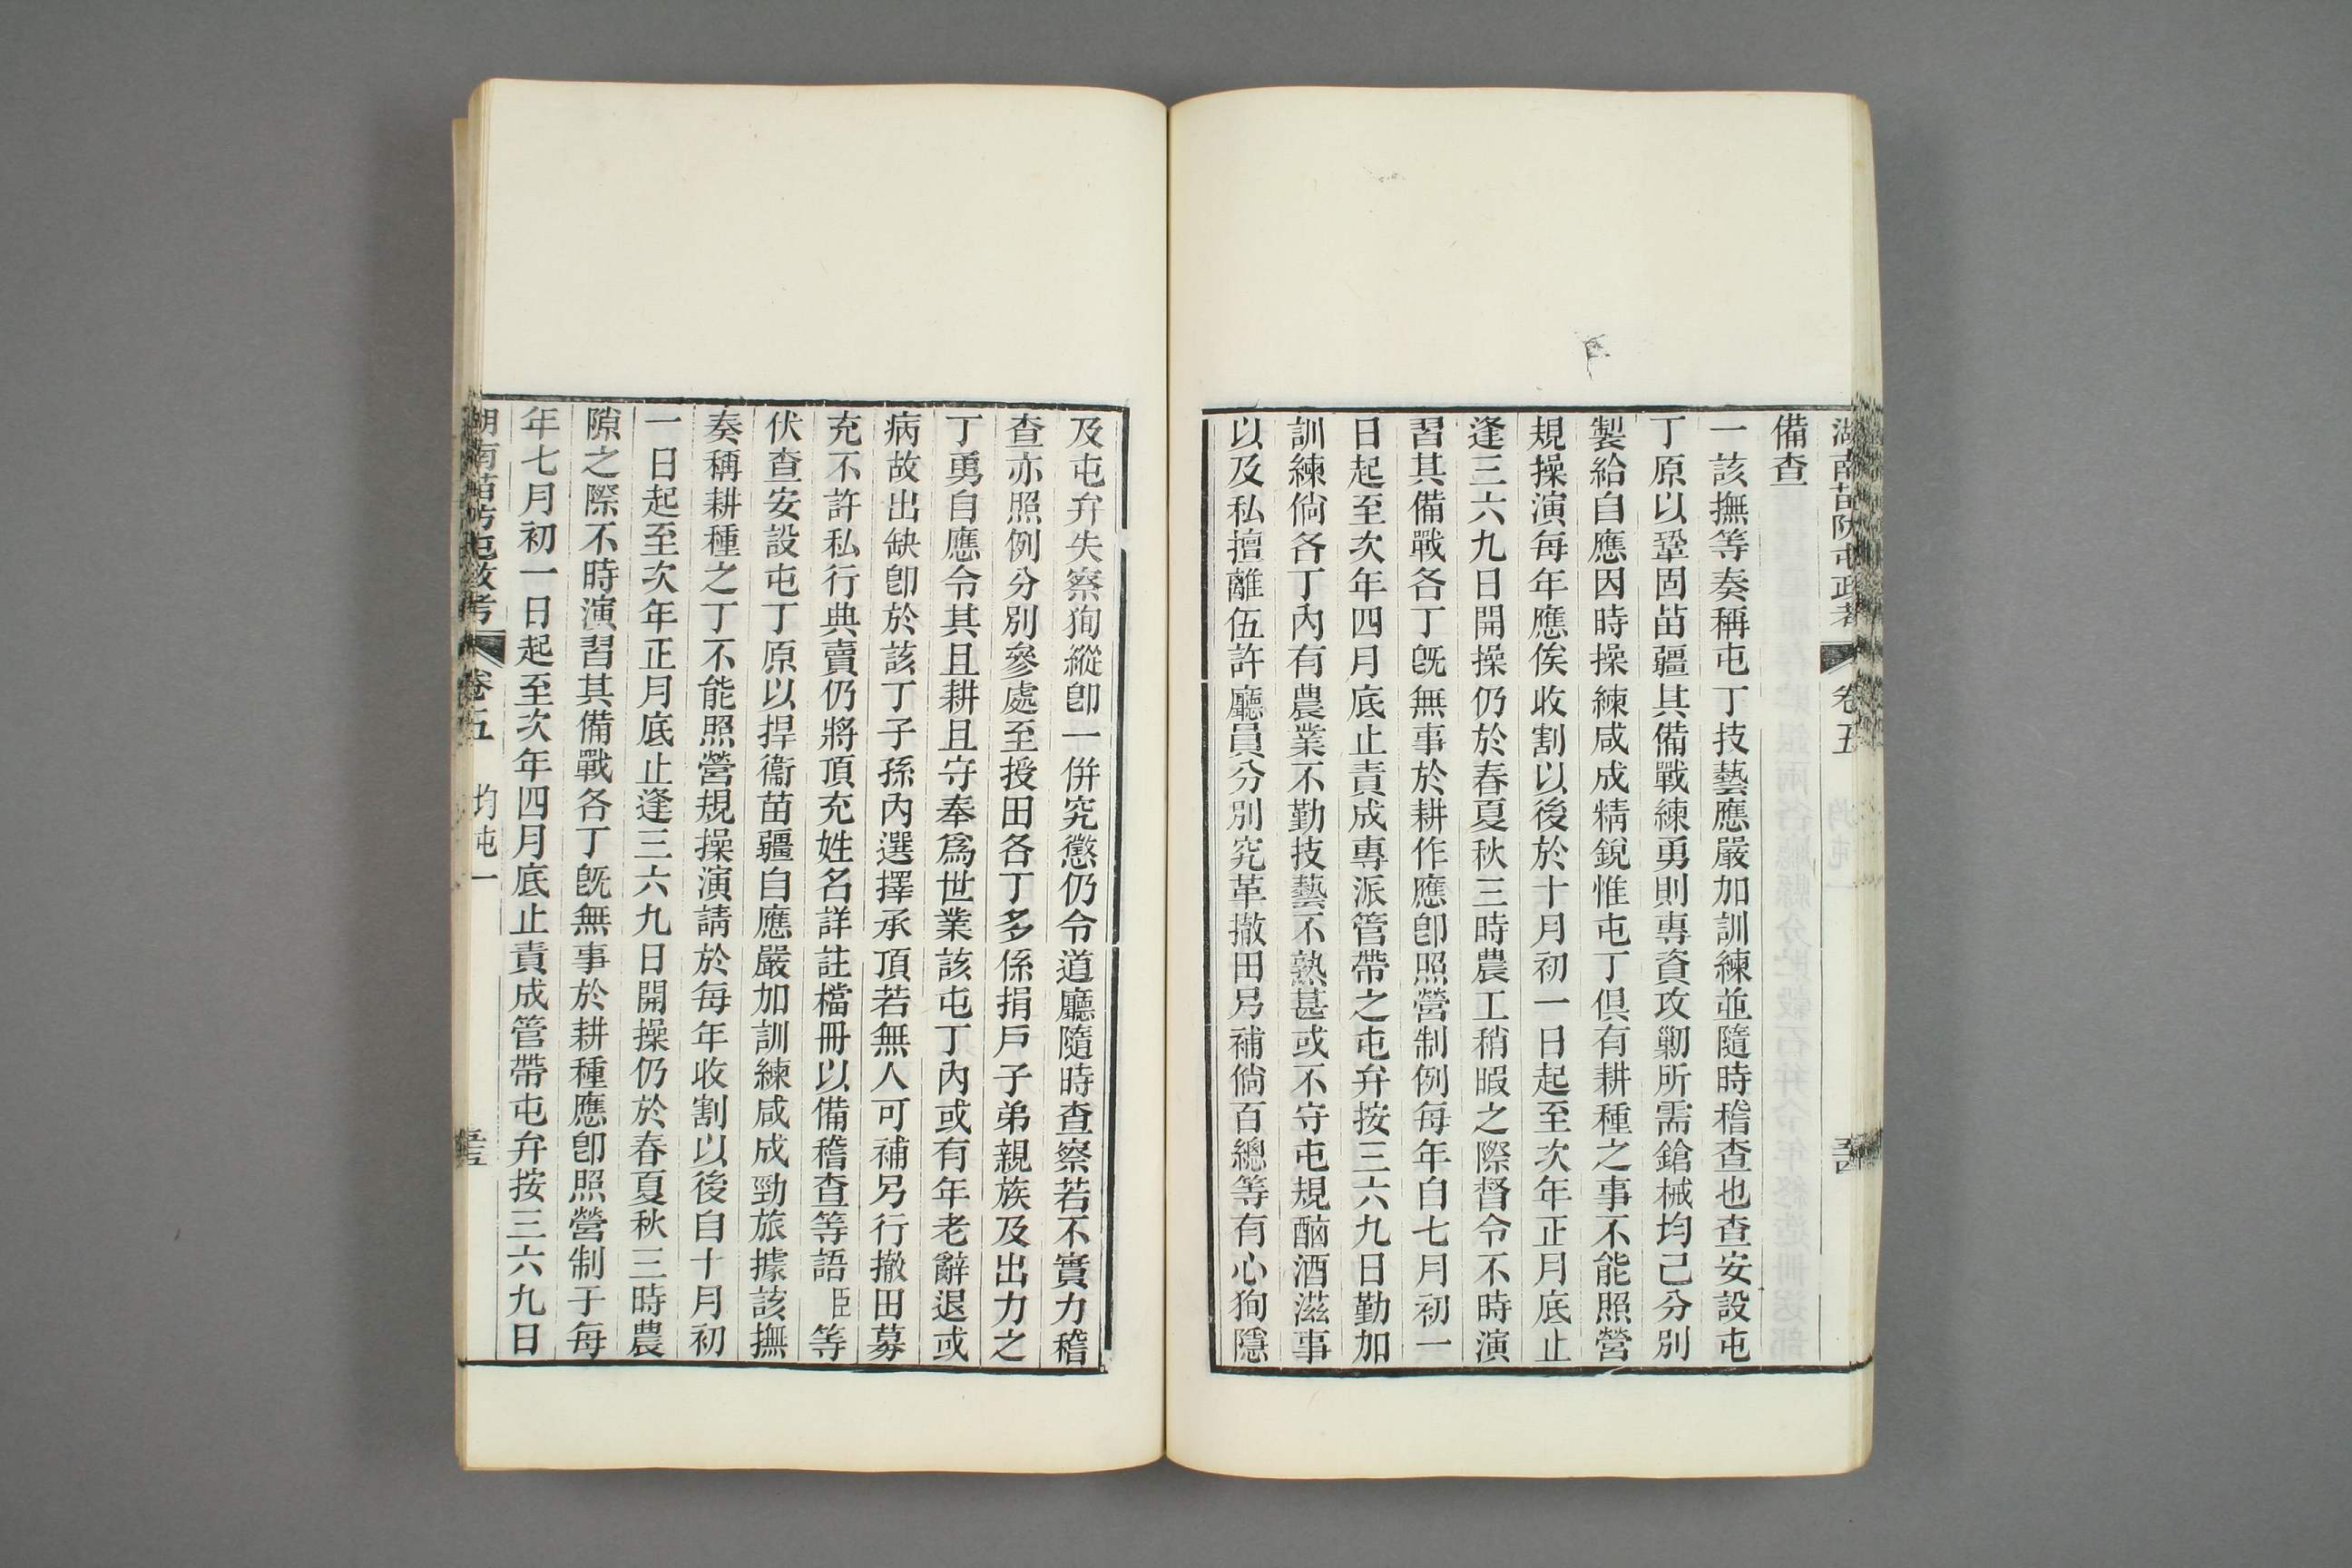 湖南苗防屯政考 卷五
備查
一該撫等奏稱屯丁技藝應嚴加訓練並隨時稽查也查安設屯
丁原以鞏固苗疆其備戰練勇則專資攻勦所需鎗械均已分別
製給自應因時操練咸成精銳惟屯丁俱有耕種之事不能照營
規操演每年應俟收割以後於十月初一日起至次年正月底止
逢三六九日開操仍於春夏秋三時農工稍暇之際督令不時演
習其備戰各丁旣無事於耕作應卽照營制例每年自七月初一
日起至次年四月底止責成專派管帶之屯弁按三六九日勤加
訓練倘各丁內有農業不勤技藝不熟甚或不守屯規酗酒滋事
以及私擅離伍許廳員分別究革撤田另補倘百總等有心狥隱
及屯弁失察狥縱卽一併究懲仍令道廳隨時查察若不實力稽
查亦照例分別參處至授田各丁多係捐戶子弟親族及出力之
丁勇自應令其且耕且守奉爲世業該屯丁內或有年老辭退或
病故出缺卽於該丁子孫內選擇承頂若無人可補另行撤田募
充不許私行典賣仍將頂充姓名詳註檔冊以備稽查等語臣等
伏查安設屯丁原以捍衞苗疆自應嚴加訓練咸成勁旅據該撫
奏稱耕種之丁不能照營規操演請於每年收割以後自十月初
一日起至次年正月底止逢三六九日開操仍於春夏秋三時農
隙之際不時演習其備戰各丁旣無事於耕種應卽照營制于每
年七月初一日起至次年四月底止責成管帶屯弁按三六九日
湖南苗防屯政考 卷五 均屯一